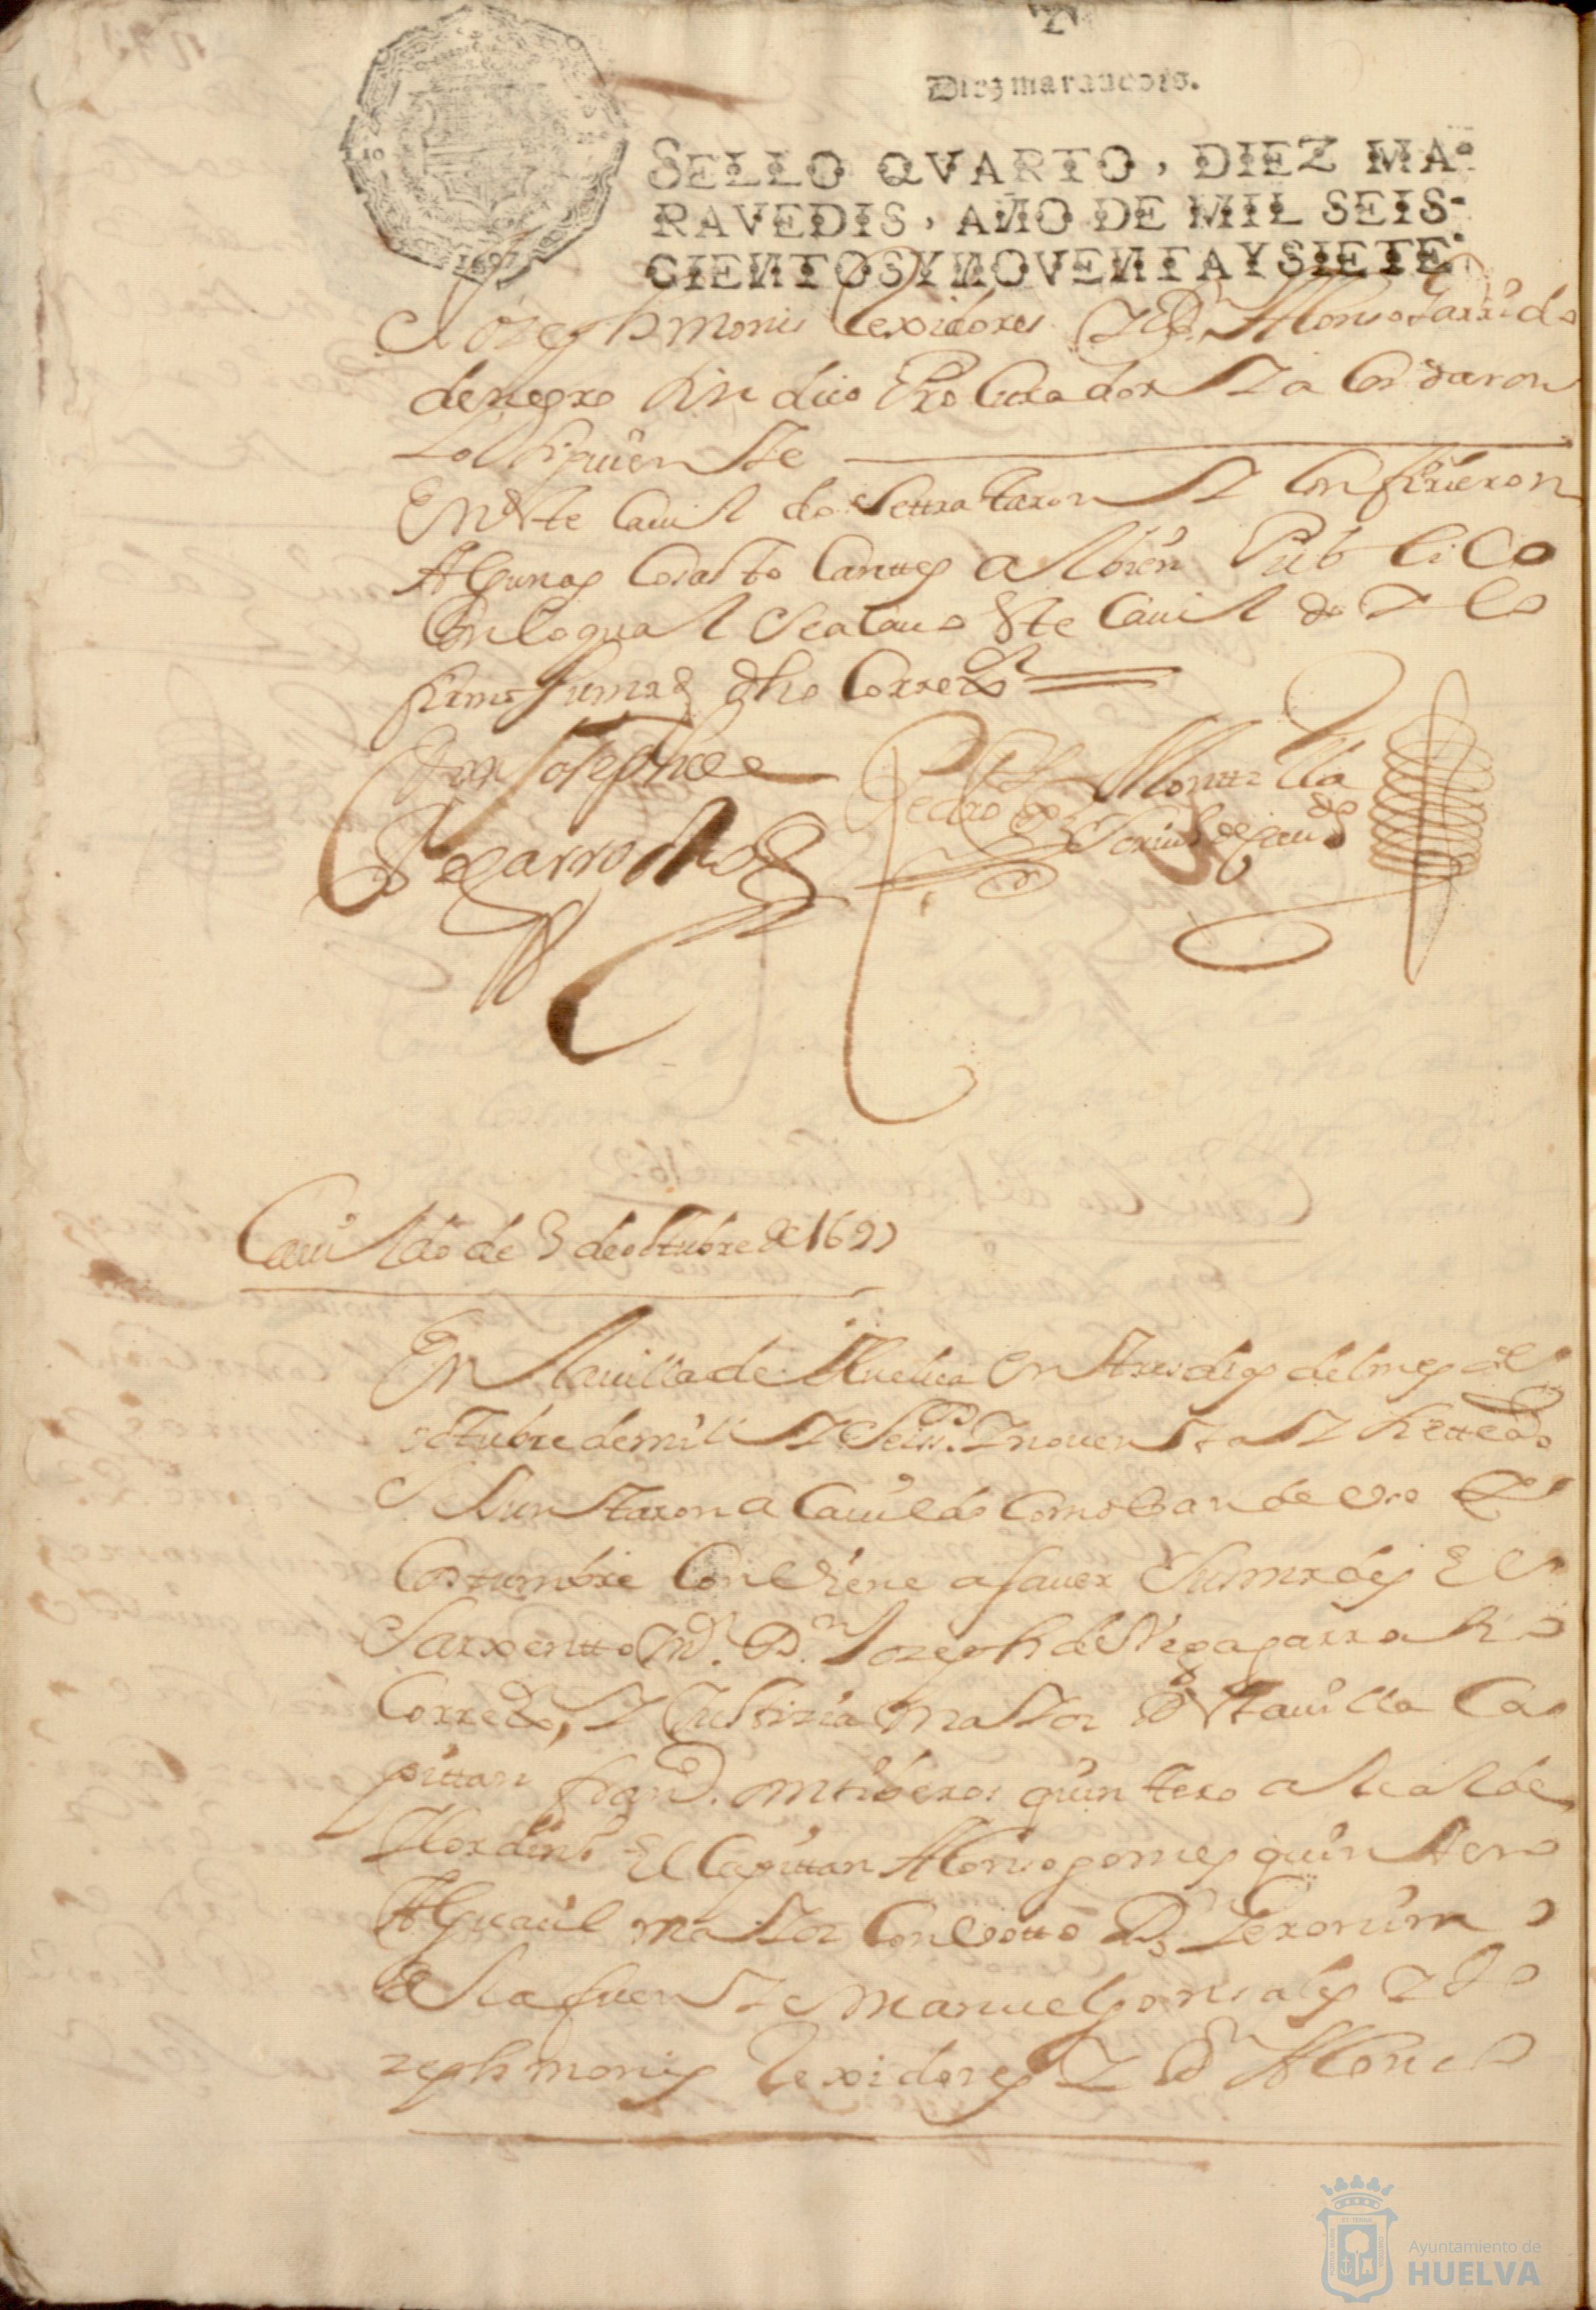 Diez maravedis.
SELLO QVARTO, DIEZ MA-
RAVEDIS, AÑO DE MIL SEIS-
CIENTOS Y NOVENTA Y SIETE.
10
1697
Jozeph monis Rexidores Y Dn Alonso Garrido
de negro sindico Procurador Y a Cordaron
Lo siguiente
En Este Cavildo se ttrataron Y Confirieron
Algunas Cosas to Cantes al bien Publico
Con lo qual se acavo Este Cavildo Y lo
firmo su mrd dho Corredor
Don Joseph de
Vega garrocho
Pedro Montilla
Scriuo de caudo
Cavildo de 3 de octubre de 1697
En la villa de Huelva en tres dias del mes de
octubre de mil Y Seisos Y noventa Y siette as
Se Juntaron a Cavildo Como lo an de uso Y
Costumbre Conviene a saver Sus mrdes El
Sarxentto Mr. Dn Jozeph de Vega garrocho
Corredor, Y Justizia maYor de Esta villa Ca
pittan franco. mrn beros quintero alcalde
Hordino El Capittan Alonso gomes quintero
Alguacil maYor Con votto Dn Geronimo
de la fuente Manuel gonsales Y Jo
zeph monis Rexidores Y Dn Alonso
Ayuntamiento de
HUELVA